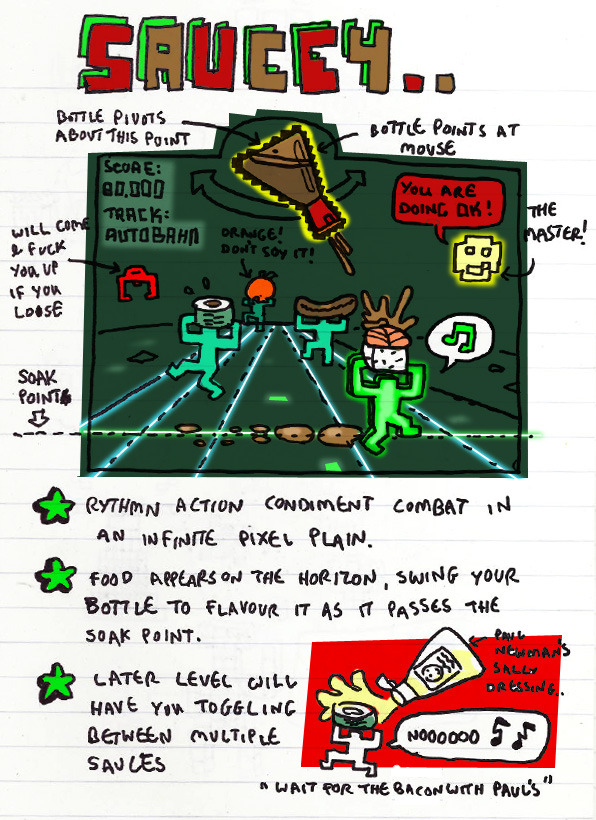 SAUCEY..
BOTTLE PIVOTS
ABOUT THIS POINT
BOTTLE POINTS AT
MOUSE
SCORE:
80,000
TRACK:
AUTOBAHN
YOU ARE
DOING OK!
THE
MASTER!
WILL COME
& FUCK
YOU UP
IF YOU
LOOSE
ORANGE!
DON'T SOY IT!
SOAK
POINT
RYTHMN ACTION CONDIMENT COMBAT IN
AN INFINITE PIXEL PLAIN.
FOOD APPEARS ON THE HORIZON, SWING YOUR
BOTTLE TO FLAVOUR IT AS IT PASSES THE
SOAK POINT.
LATER LEVEL WILL
HAVE YOU TOGGLING
BETWEEN MULTIPLE
SAUCES
PAUL
NEWMAN'S
SALLY
DRESSING.
NOOOOOO
"WAIT FOR THE BACON WITH PAUL'S"